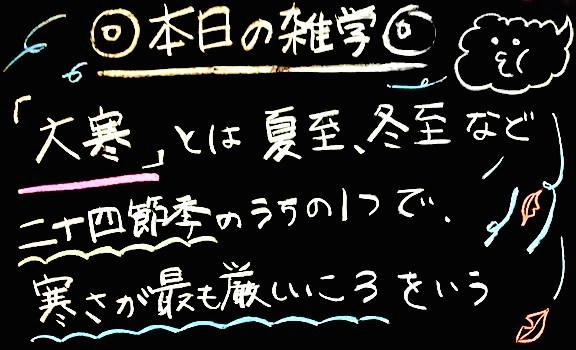 ◎本日の雑学◎
「大寒」とは夏至、冬至など
二十四節季のうちの1つで、
寒さが最も厳しいころをいう